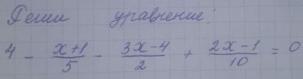 Реши уравнение:
4 - \frac{x+1}{5} - \frac{3x-4}{2} + \frac{2x-1}{10} = 0